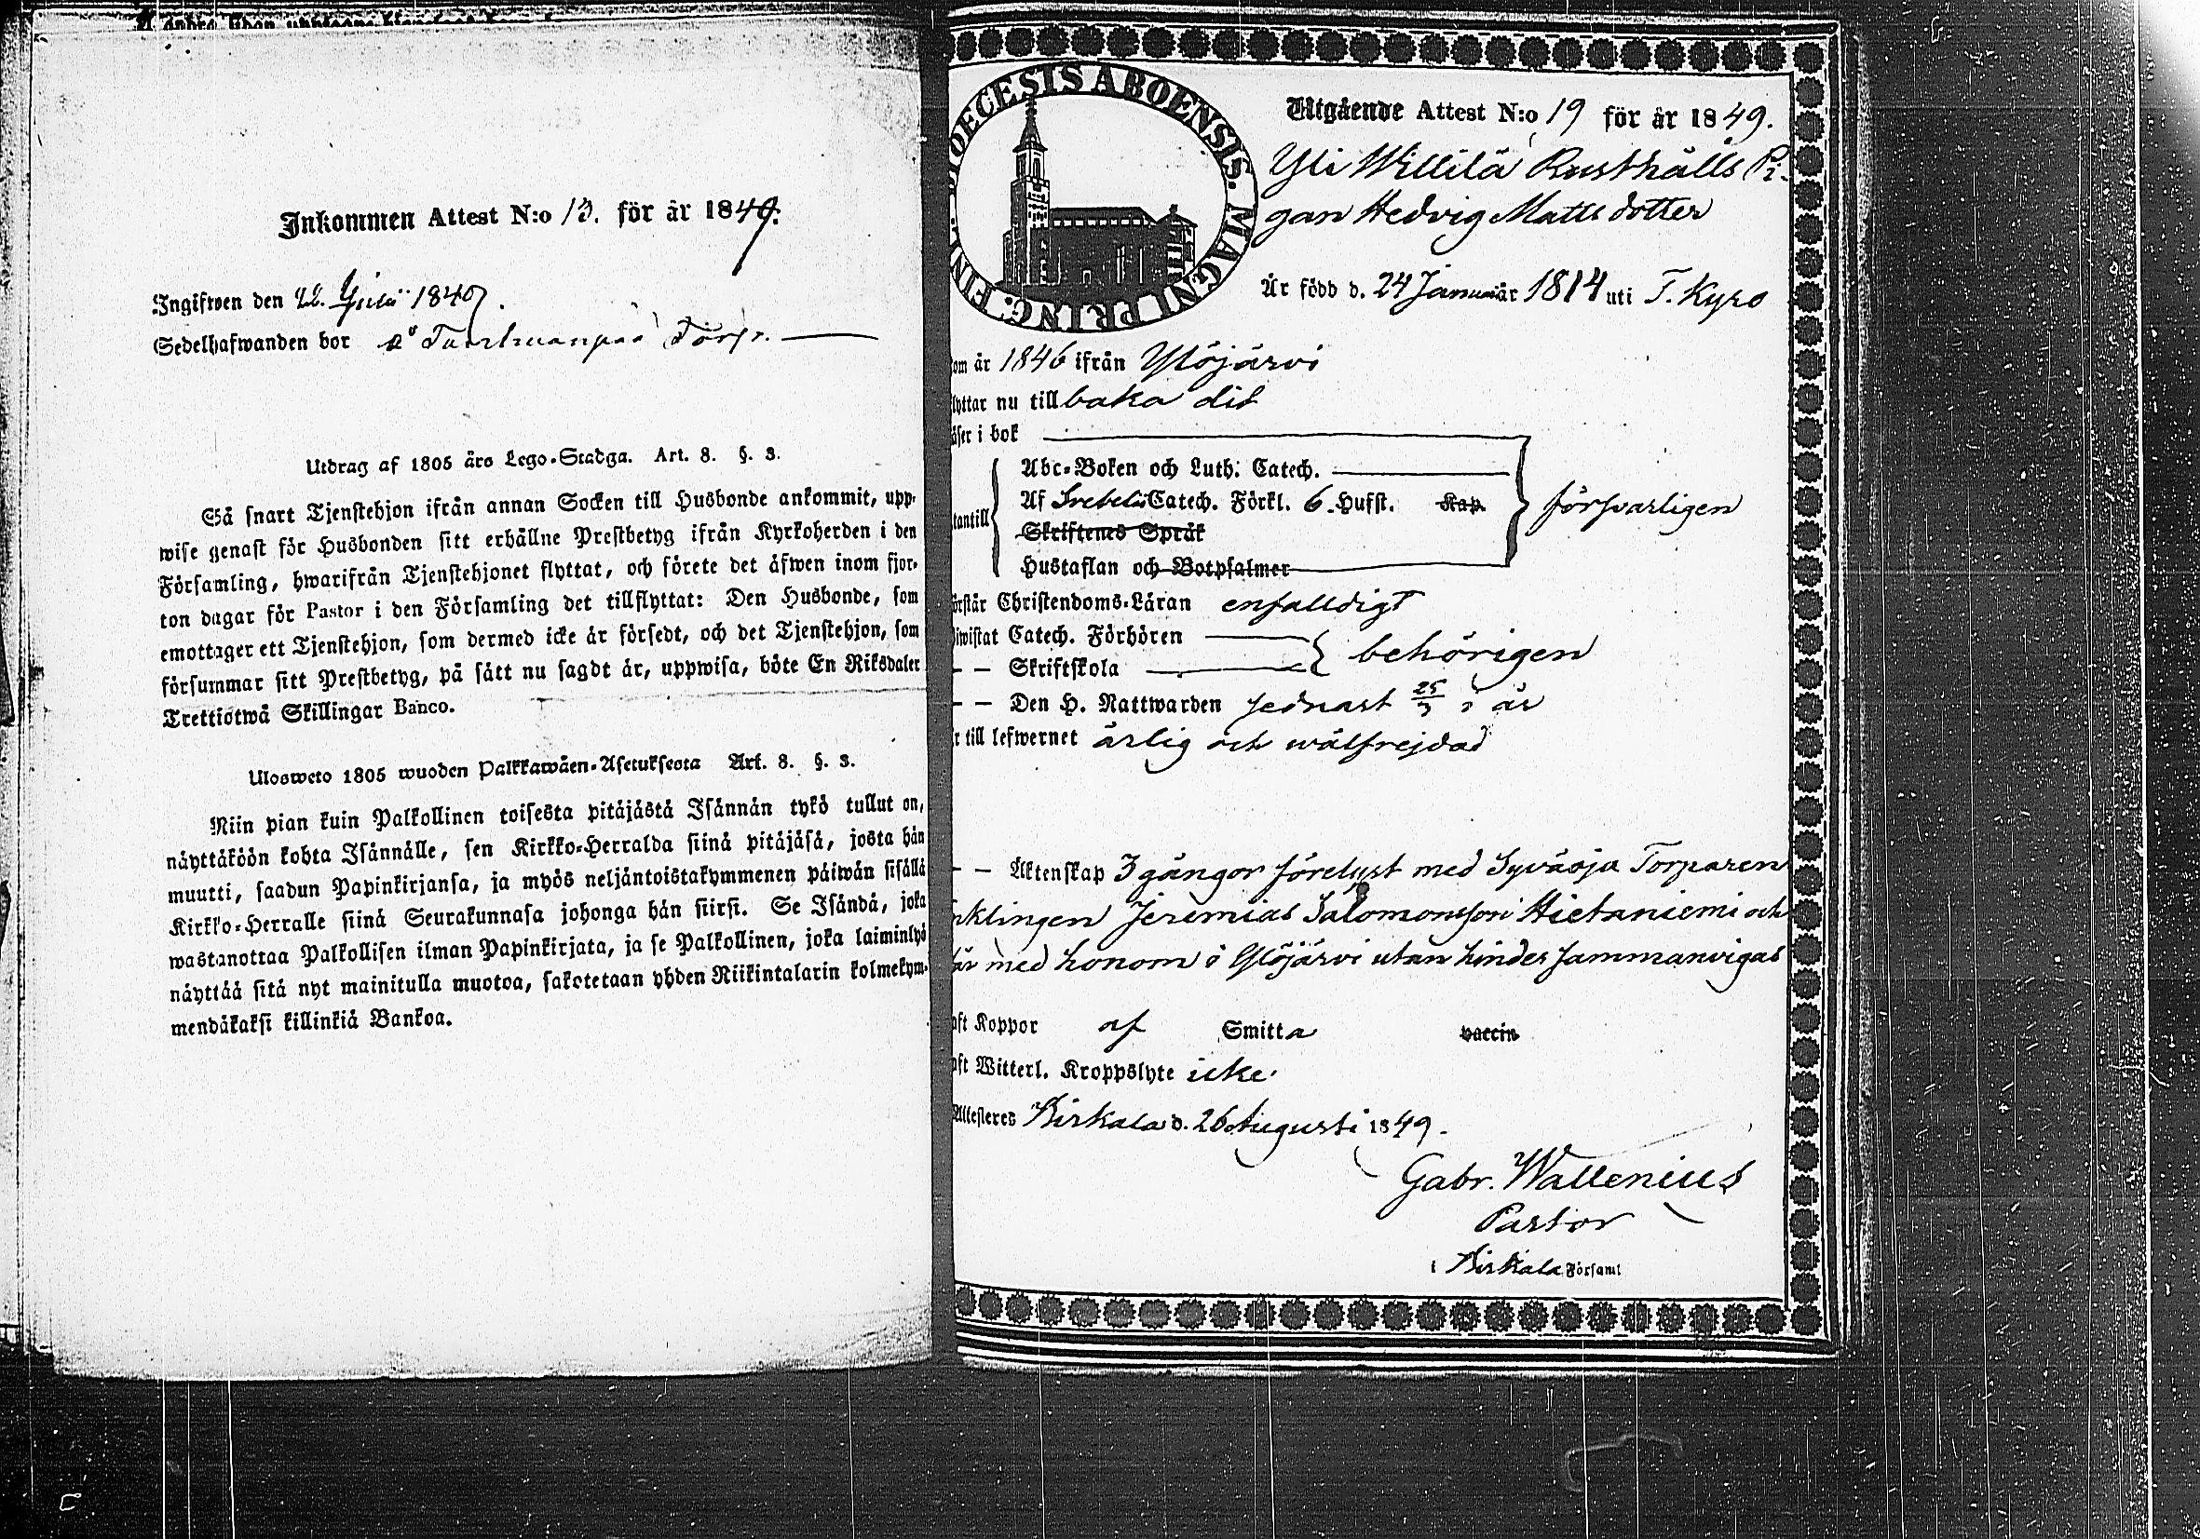 Inkommen Attest N:o 13. för år 1849.
Ingifwen den 22. Julii 1849.
Sedelhafwanden bor å Torp.
Utdrag af 1805 års Lego-Stadga. Art. 8. §. 3.
Så snart Tjenstehjon ifrån annan Socken till Husbonde ankommit, upp-
wise genast för Husbonden sitt erhållne Prestbetyg ifrån Kyrkoherden i den
Församling, hwarifrån Tjenstehjonet flyttat, och förete det åfwen inom fjor-
ton dagar för Pastor i den Församling det tillflyttat: Den Husbonde, som
emottager ett Tjenstehjon, som dermed icke är försedt, och det Tjenstehjon, som
försummar sitt Prestbetyg, på sätt nu sagdt är, uppwisa, böte En Riksdaler
Trettiotwå Skillingar Banco.
Ulosweto 1805 wuoden Palkkawäen-Asetuksesta Art. 8. §. 3.
Niin pian kuin Palkollinen toisesta pitäjästä Isännän tykö tullut on,
näyttäköön kohta Isännälle, sen Kirkko-Herralda siinä pitäjäsä, josta hän
muutti, saadun Papinkirjansa, ja myös neljäntoistakymmenen päiwän sisällä
Kirkko-Herralle siinä Seurakunnasa johonga hän siirsi. Se Isändä, joka
wastanottaa Palkollisen ilman Papinkirjata, ja se Palkollinen, joka laiminlyö
näyttää sitä nyt mainitulla muotoa, sakotetaan yhden Riikintalarin kolmekym-
mendäkaksi killinkiä Bankoa.
DIOECESIS ABOENSIS. MAGNI PRINC. FIN
Utgående Attest N:o 19 för år 1849.
Yli Willilä Rusthålls Pi-
gan Hedvig Matts dotter
Är född d. 24 Januar 1814 uti T. Kyro
om år 1846 ifrån Ylöjärvi
lyttar nu tillbaka dit
äser i bok
Abc-Boken och Luth. Catech.
Af Svebelii Catech. Förkl. 6 Hufst. Kap.
tantill
Skriftenes Språk
Hustaflan och Botpsalmer
försvarligen
örstår Christendoms-Läran enfalldigt
iwistat Catech. Förhören
– – Skriftskola
behörigen
– – Den H. Nattwarden sednast 25/3 i år
r till lefwernet ärlig och wälfrejdad
– – Äktenskap 3 gångor förelyst med Syväoja Torparen
nklingen Jeremias Salomonsson Hietaniemi och
får med honom i Ylöjärvi utan hinder sammanvigas
aft Koppor af Smitta vaccin
aft Witterl. Kroppslyte icke
Attesteres Birkala d. 26 Augusti 1849.
Gabr. Wallenius
Pastor
i Birkala Församl